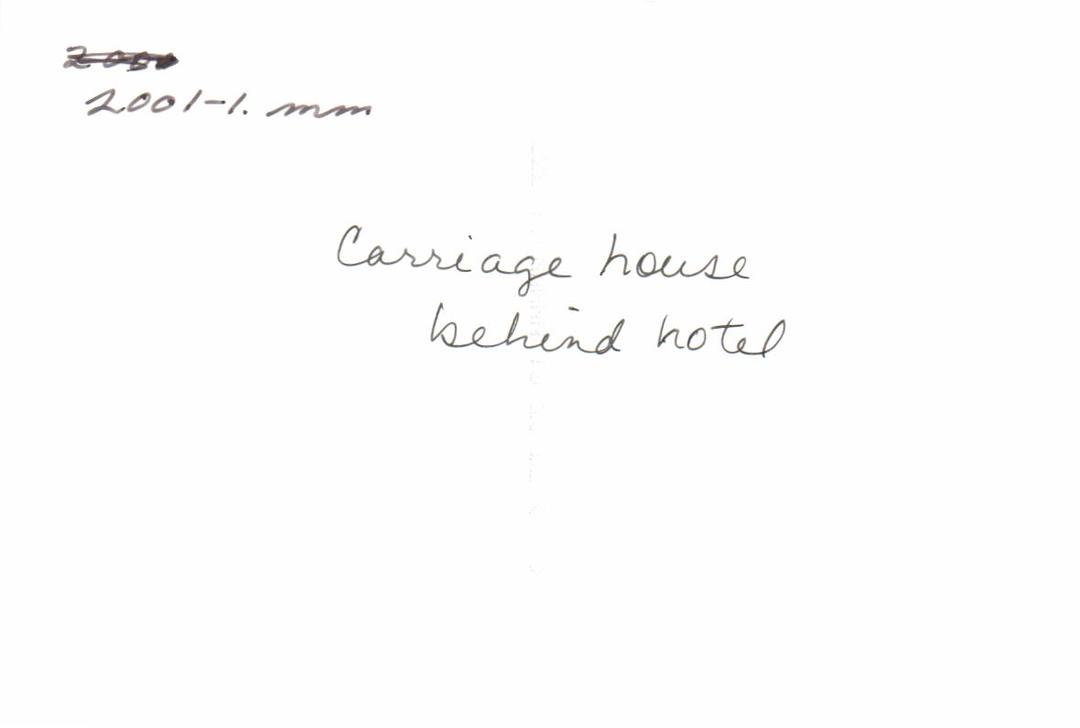 2001-1. mm
Carriage house
behind hotel